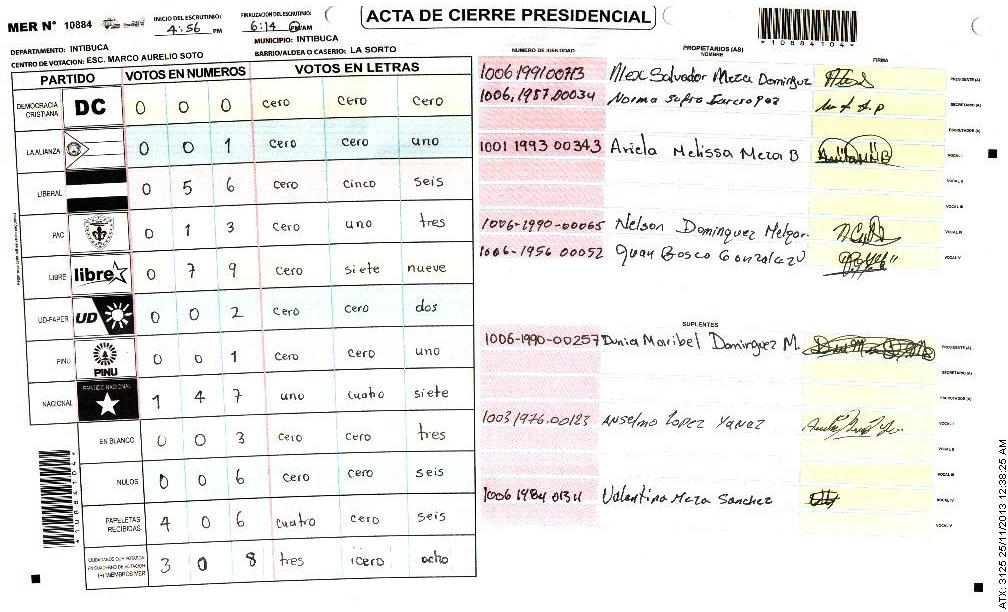 ACTA DE CIERRE PRESIDENCIAL
MER N° 10884
INICIO DEL ESCRUTINIO: 4:56 PM
FINALIZACION DEL ESCRUTINIO: 6:14 PM/AM
MER N°
*10884104*
DEPARTAMENTO: INTIBUCA
MUNICIPIO: INTIBUCA
CENTRO DE VOTACION: ESC. MARCO AURELIO SOTO
BARRIO/ALDEA O CASERIO: LA SORTO
PARTIDO VOTOS EN NUMEROS VOTOS EN LETRAS
DEMOCRACIA CRISTIANA DC 0 0 0 cero cero cero
LA ALIANZA 0 0 1 cero cero uno
LIBERAL 0 5 6 cero cinco seis
PAC 0 1 3 cero uno tres
LIBRE libre 0 7 9 cero siete nueve
UD-FAPER UD 0 0 2 cero cero dos
PINU PINU 0 0 1 cero cero uno
NACIONAL PARTIDO NACIONAL 1 4 7 uno cuatro siete
EN BLANCO 0 0 3 cero cero tres
NULOS 0 0 6 cero cero seis
PAPELETAS RECIBIDAS 4 0 6 cuatro cero seis
CIUDADANOS QUE VOTARON EN CUADERNO DE VOTACION (+) MIEMBROS MER 3 0 8 tres cero ocho
*10884104*
NUMERO DE IDENTIDAD PROPIETARIOS (AS) NOMBRE FIRMA
Alex Salvador Meza Dominguz PRESIDENTE (A)
1006.1957.00034 Norma SECRETARIO (A)
ESCRUTADOR (A)
1001 1993 00343 Ariela Melissa Meza B VOCAL I
VOCAL II
VOCAL III
1006-1990-00065 Nelson Dominguez Melgar VOCAL IV
1006-1956 00052 Juan Bosco Gonzalez V VOCAL V
SUPLENTES
1006-1990-00257 Dunia Maribel Dominguez M. PRESIDENTE (A)
SECRETARIO (A)
ESCRUTADOR (A)
1003 1976.00123 Anselmo Lopez Yanez VOCAL I
VOCAL II
VOCAL III
Valentina Meza Sanchez VOCAL IV
VOCAL V
ATX: 3125 25/11/2013 12:38:25 AM